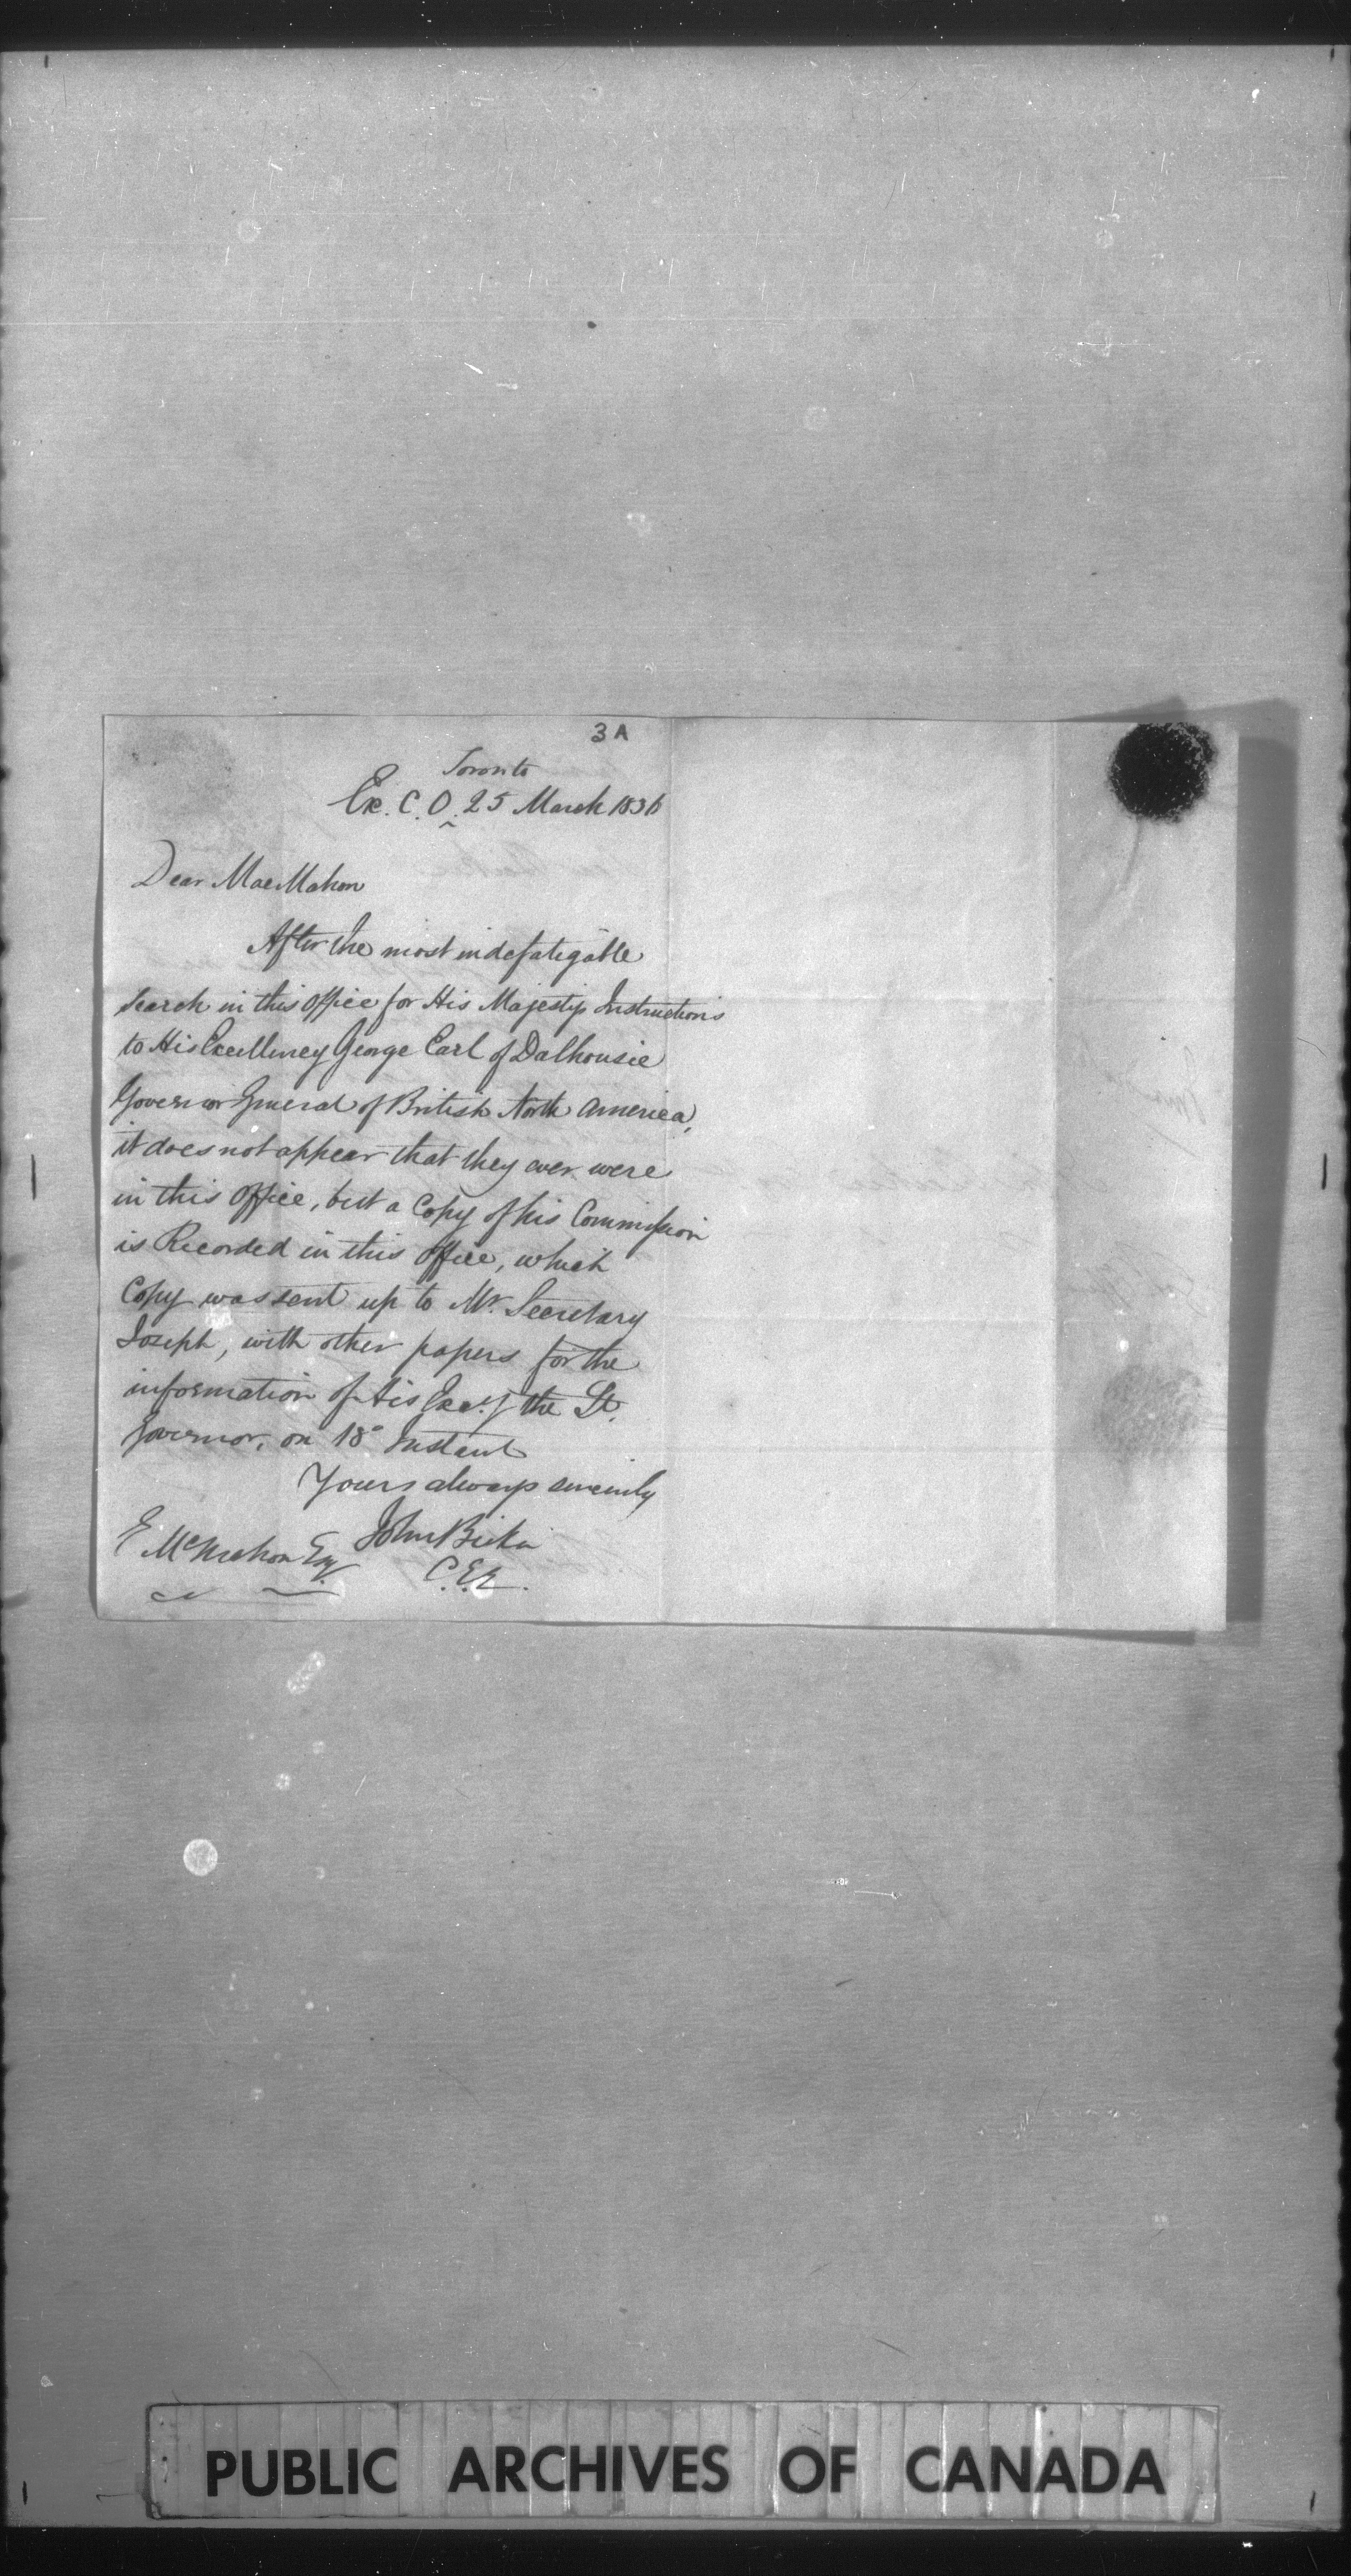 3A
Toronto
Ex. C. O. 25 March 1836
Dear MacMahon
After the most indefatigable
search in this office for His Majestys Instructions
to His Excellency George Earl of Dalhousie
Governor General of British North America,
it does not appear that they ever were
in this Office, but a Copy of his Commission
is Recorded in this Office, which
Copy was sent up to Mr. Secretary
Joseph, with other papers for the
information of His Excy the Lt.
Governor, on 18° Instant
Yours always sincerely
John Beikie
E McMahon Esq.
PUBLIC ARCHIVES OF CANADA